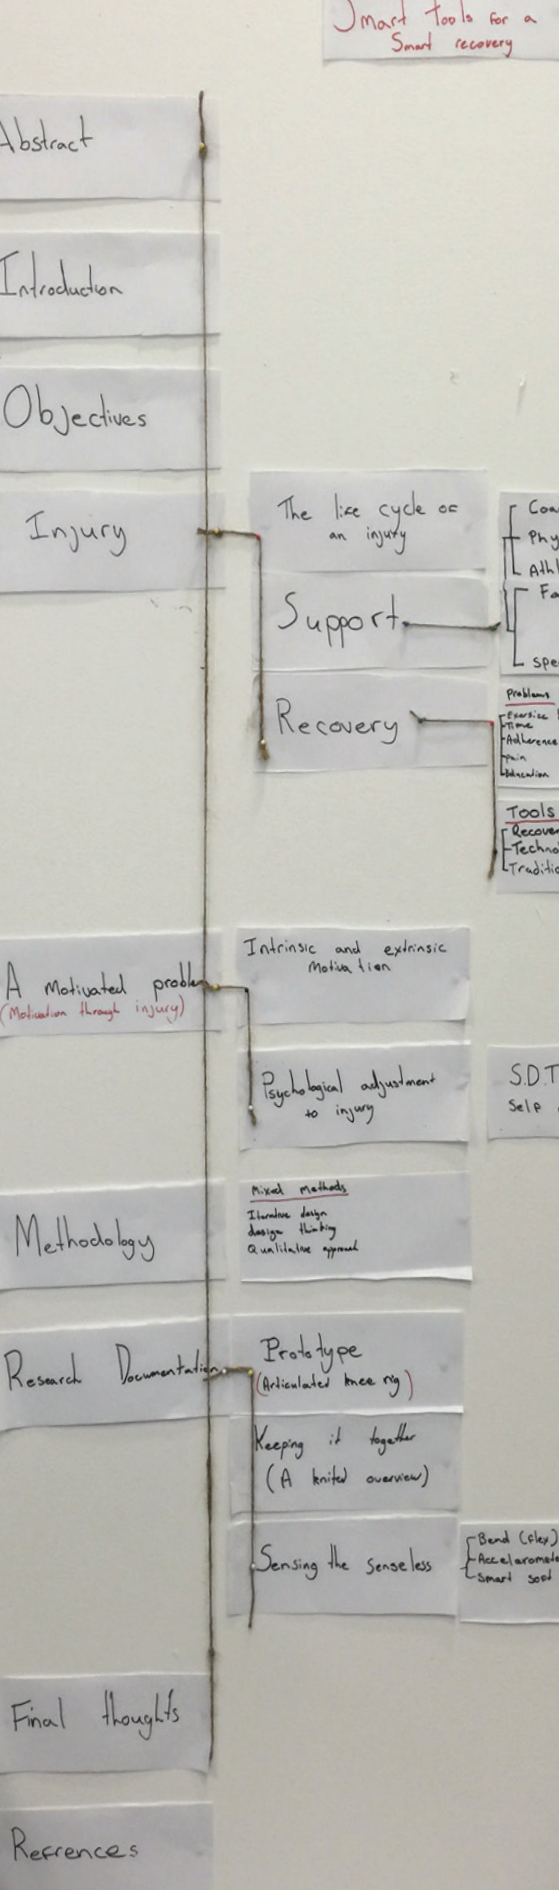 Smart tools for a
Smart recovery
Abstract
Introduction
Objectives
Injury
The life cycle of
an injury
Support
Recovery
Coa
Phy
Athl
Fa
Spe
Problems
Exersize
Time
Adherence
pain
Education
Tools
Recover
Techno
Traditio
A Motivated problem
(Motivation through injury)
Intrinsic and extrinsic
Motivation
Psychological adjustment
to injury
S.D.T
Self
Methodology
Mixed Methods
Iterative design
design thinking
Qualitative approach
Research Documentation
Prototype
(Articulated knee rig)
Keeping it together
(A knited overview)
Sensing the senseless
Bend (flex)
Accelaromete
Smart
Final thoughts
Refrences